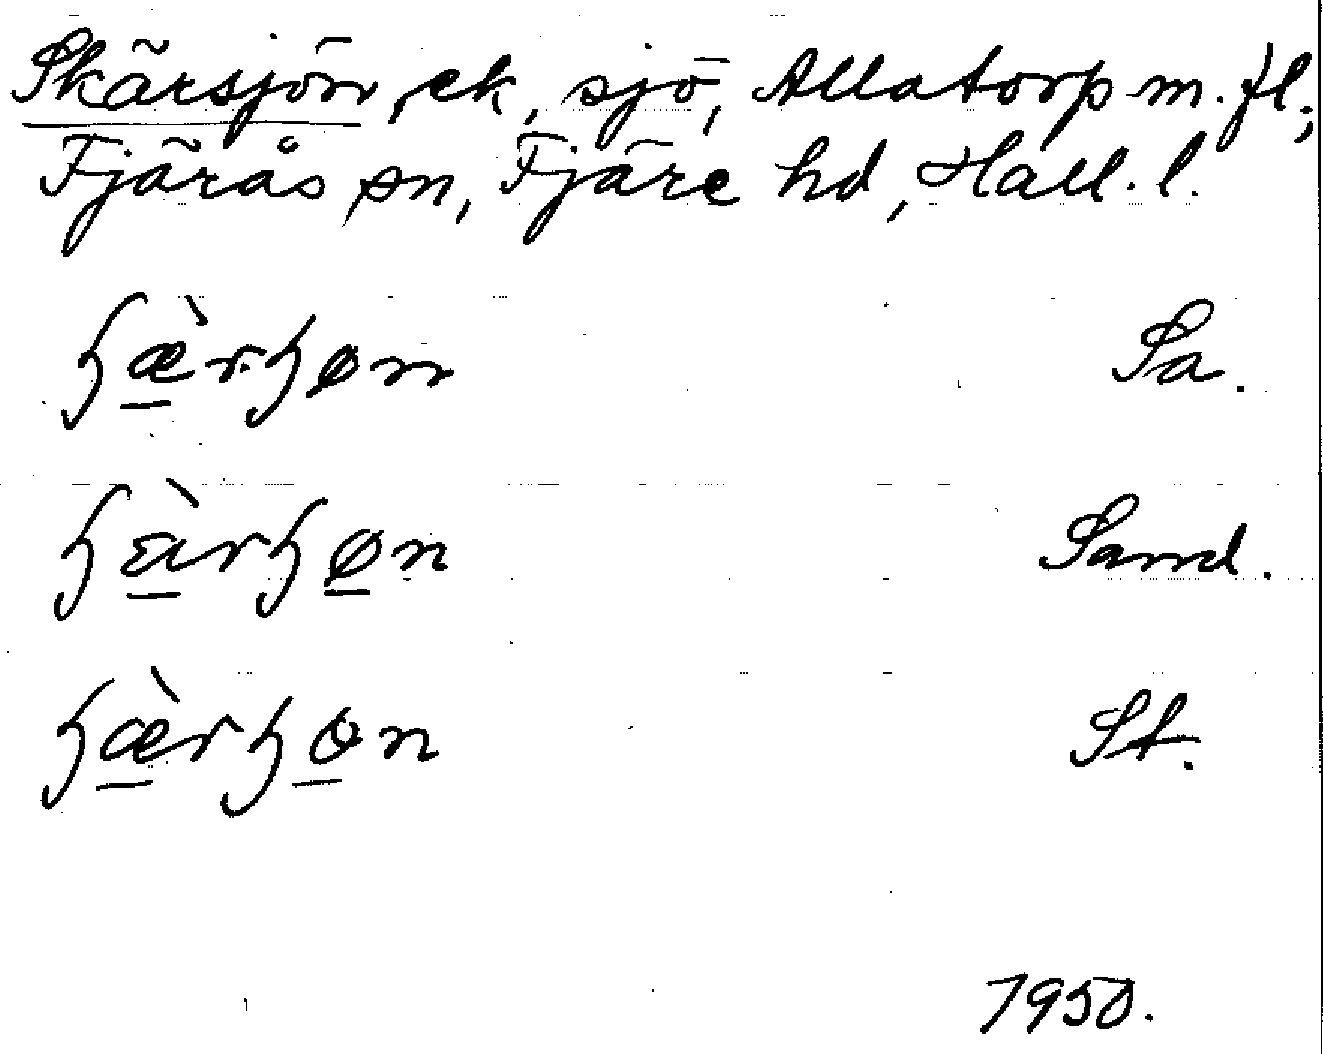 Skärsjön, ek, sjö, Allatorp m. fl.;
Fjärås sn, Fjäre hd, Hall. l.
ɧæ̠̀rɧøn Sa.
ɧà̠rɧø̠n Sand.
ɧæ̠̀rɧɵ̠n St.
1950.